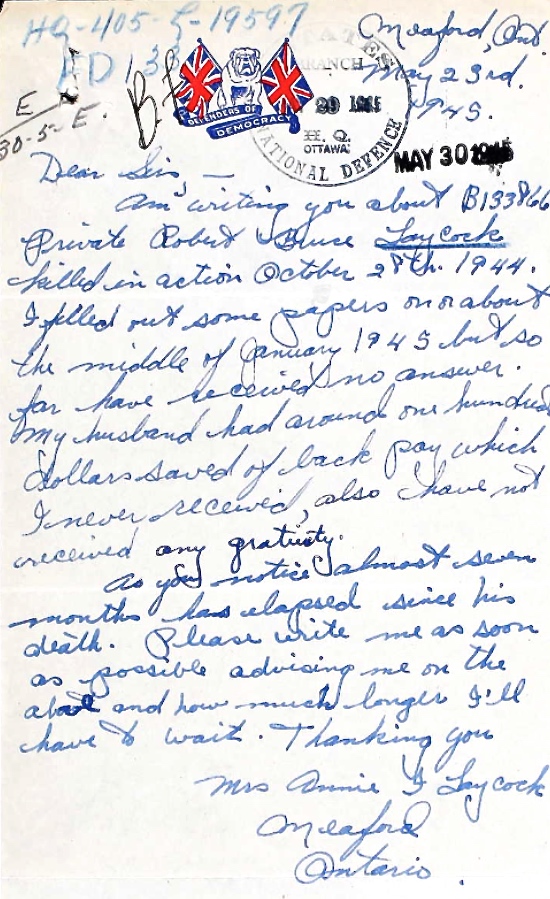 HQ-405-L-19597
Meaford, Ont.
ED 133
May 23rd.
BRANCH
1945.
E
B.F.
29 1945
30-5- E.
DEFENDERS OF
DEMOCRACY
H. Q.
OTTAWA
NATIONAL DEFENCE
MAY 30 1945
Dear Sir, —
Am writing you about B133866
Private Robert Bruce Laycock
killed in action October 28th. 1944.
I filled out some papers on or about
the middle of January 1945 but so
far have received no answer.
My husband had around one hundred
dollars saved of back pay which
I never received, also I have not
received any gratuity.
As you notice almost seven
months has elapsed since his
death. Please write me as soon
as possible advising me on the
above and how much longer I'll
have to wait. Thanking you
Mrs Annie I Laycock
Meaford
Ontario.